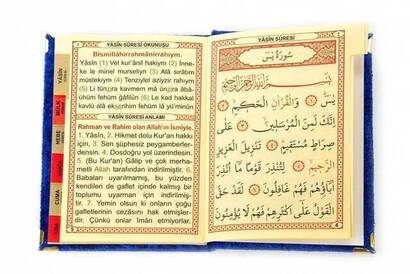 YÂSİN SÛRESİ OKUNUŞU
Bismillâhirrahmânirrahıym.
Yâsîn (1) Vel kur'ânil hakiym (2) İnne-
ke le minel murseliyn (3) Alâ sırâtım
müstekıym (4) Tenziylel aziyzir rahıym
(5) Li tünzira kavmem mâ ünzira âbâ-
ühüm fehüm ğâfilûn (6) Le kad hakkal
kavlü alâ ekserihim fehüm lâ yü'minûn
YÂSİN SÛRESİ ANLAMI
Rahman ve Rahim olan Allah'ın İsmiyle.
1. Yâsîn, 2. Hikmet dolu Kur'an hakkı
için, 3. Sen şüphesiz peygamberler-
densin. 4. Dosdoğru yol üzerindesin.
5. (Bu Kur'an) Gâlip ve çok merha-
metli Allah tarafından indirilmiştir. 6.
Babaları uyarılmamış, bu yüzden
kendileri de gaflet içinde kalmış bir
toplumu uyarman için indirilmiş-
tir. 7. Yemin olsun ki onların çoğu
gafletlerinin cezasını hak etmişler-
dir. Çünkü onlar İman etmiyorlar.
5
YÂSİN
MÜLK
NEBE
CUMA
YÂSİN SÛRESİ
سُورَةُ يٰسٓ
بِسْمِ اللّٰهِ الرَّحْمٰنِ الرَّحِيمِ
يٰسٓ ﴿١﴾ وَالْقُرْاٰنِ الْحَكِيمِ ﴿٢﴾
اِنَّكَ لَمِنَ الْمُرْسَلِينَ ﴿٣﴾ عَلٰى
صِرَاطٍ مُسْتَقِيمٍ ﴿٤﴾ تَنْزِيلَ الْعَزِيزِ
الرَّحِيمِ ﴿٥﴾ لِتُنْذِرَ قَوْمًا مَٓا اُنْذِرَ
اٰبَٓاؤُهُمْ فَهُمْ غَافِلُونَ ﴿٦﴾ لَقَدْ حَقَّ
الْقَوْلُ عَلٰٓى اَكْثَرِهِمْ فَهُمْ لَا يُؤْمِنُونَ
4